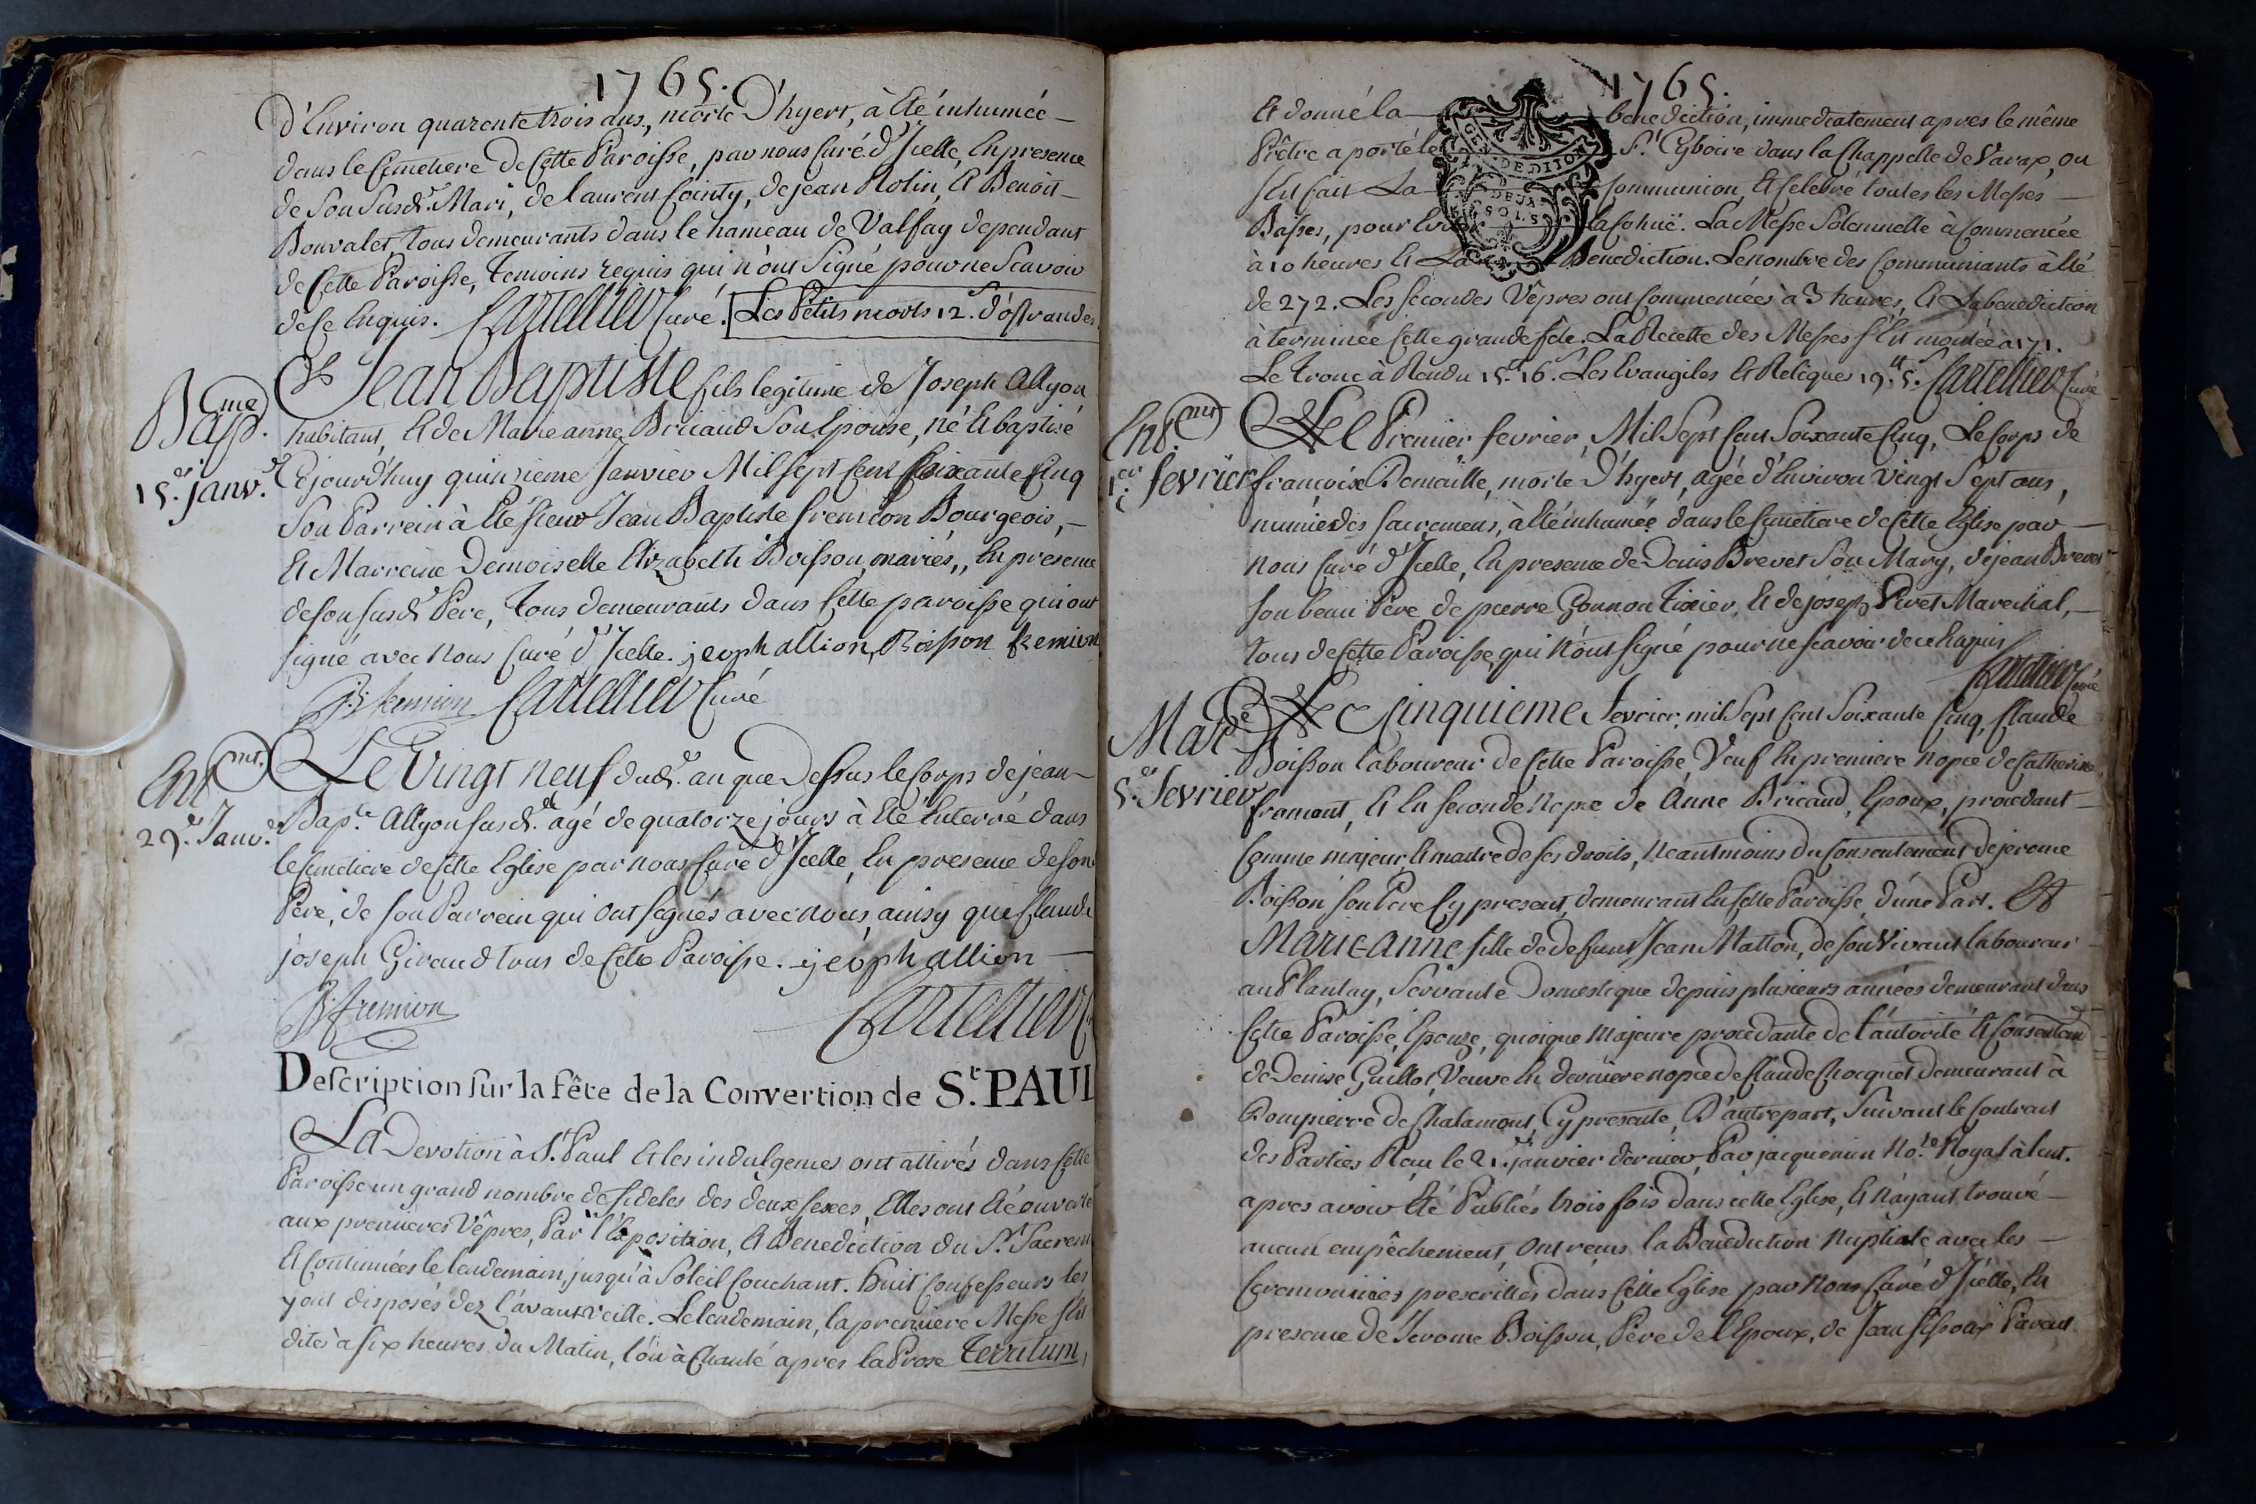 1765.
d'Environ quarente trois ans, morte D'hyert, à Eté inhumée
dans le Cimetiere De Cette Paroisse, par nous Curé d'Jcelle, En presence
de Son Susd.t Mari, de laurent Cointy, de jean Rolin, Et Benoit
Bouvalet, tous demeurants dans le hameau de Valfay dependant
de Cette Paroisse, temoins requis qui n'ont Signé pour ne Scavoir
de Ce Enquis. Cartellier Curé. Les Petits morts 12.s d'offrandes
Bap.me
15.e janv.r
Jean Baptiste fils legitime de Joseph Allyon
habitant, Et de Marie anne Bricaud Son Epouse, né Et baptisé
Cejourd'huy quinzieme Janvier Mil Sept Cent Soixante Cinq
Son Parrein à Eté Sieur Jean Baptiste fremion Bourgeois,
Et Marreine Demoiselle Elizabeth Boisson, mariés, En presence
de Son Susd.t Pere, tous demeurants dans Cette paroisse qui ont
Signé avec Nous Curé d'Jcelle. jeoph allion, Boisson fremion
J:B: fremion Cartellier Curé
Ent.mt.
29.e Janv.r
Le Vingt neuf dud.t an que Dessus le Corps de jean
Bap.te Allyon Susd.t agé de quatorze jours à Eté Enterré dans
le Cimetiere de Cette Eglise par nous Curé d'Jcelle, En presence de Son
Pere, de Son Parrein qui ont Signés avec nous, ainsy que Claude
joseph Giraud tous de Cette Paroisse. jéoph allion
J:B: fremion
Cartellier
Description sur la fête de la Convertion de S.t PAUL
La Devotion à S.t Paul Et les indulgences ont attirés dans Cette
Paroisse un grand nombre de fideles des deux Sexes, Elles ont Eté ouverte
aux premieres Vêpres, Par l'Exposition, Et Benediction du S.t Sacrem
Et Continuées le lendemain, jusqu'à Soleil Couchant. Huit Confesseurs les
y ont disposés dez l'avant veille. Le lendemain, la premiere Messe S'est
dites à Six heures du Matin, l'on à Chanté apres la Prose
1765.
Et donné la benediction, immediatement apres le même
Prêtre a porté le S.t Cyboire dans la Chappelle de Varax, ou
S'est fait La Communion, Et Celebré toutes les Messes
Basses, pour la Cohuë. La Messe Solemnelle à Commencée
à 10 heures Et La Benediction. Le nombre des Communiants à Eté
de 272. Les Secondes Vêpres ont Commencées à 3 heures, Et La benediction
à terminée Cette grande fête. La Recette des Messes S'est montée à 171.
Le tronc à Rendu 15.lt 16.s Les Evangiles Et Reliques 19.lt 5.s Cartellier Curé
GEN. DE DIJON
Ent.mt
1.er fevrier
Le Premier fevrier, Mil Sept Cent Soixante Cinq, Le Corps de
françoise Demaille, morte D'hyert, agée d'Environ Vingt Sept ans,
munie des Sacremens, à Eté inhumée dans le Cimetiere de Cette Eglise par
nous Curé d'Jcelle, En presence de Denis Brevet Son Mary, de jean Brevet
Son beau Pere, de pierre Gonnon tixier, Et de joseph Piret Marechal,
tous de Cette Paroisse, qui N'ont Signé pour ne Scavoir de ce Enquis
Cartellier Curé
Mar.ge
5.e fevrier
Le Cinquieme fevrier, mil Sept Cent Soixante Cinq, Claude
Boisson laboureur de Cette Paroisse, Veuf En premiere Nopce de Catherine
fromont, Et En Seconde Nopce de Anne Bricaud, Epoux, procedant
Comme majeur Et maitre de Ses droits, Neantmoins du Consentement de jerome
Boisson Son Pere Cy present, demeurant En Cette Paroisse d'une Part. Et
Marie-anne fille de defunt Jean Matton, de Son Vivant laboureur
au Plantay, Servante Domestique depuis plusieurs années demeurant dans
Cette Paroisse, Epouze, quoique Majeure procedante de l'autorité Et Consentem
de Denise Guillot Veuve En derniere nopce de Claude Chocquet demeurant à
Rompierre de Chalamont, Cy presente, D'autre part, Suivant le Contrat
des Parties Recu le 21. janvier dernier, Par jacquemin No.re Royal à lent.
apres avoir Eté Publiés trois fois dans cette Eglise, Et N'ayant trouvé
aucun empêchement, Ont recus la Benediction Nuptiale avec les
Ceremonies prescrittes dans Cette Eglise par Nous Curé d'Jcelle, En
presence de Jerome Boisson, Pere de l'Epoux, de Jean Parent